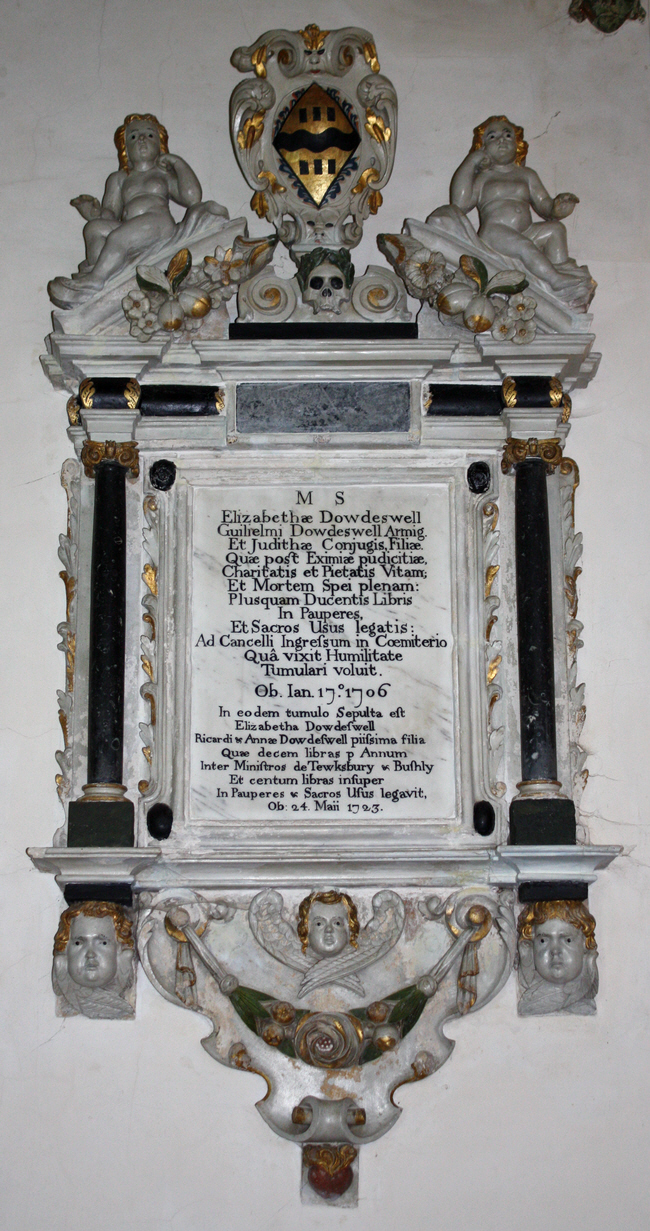 M S
Elizabethæ Dowdeswell
Gulielmi Dowdeswell Armig.
Et Judithæ Conjugis, Filiæ.
Quæ poſt Eximiæ pudicitiæ,
Charitatis et Pietatis Vitam;
Et Mortem Spei plenam:
Pluſquam Ducentis Libris
In Pauperes,
Et Sacros Uſus legatis:
Ad Cancelli Ingreſsum in Cœmiterio
Quâ vixit Humilitate
Tumulari voluit.
Ob. Ian. 17.º 1706
In eodem tumulo Sepulta eſt
Elizabetha Dowdeſwell
Ricardi & Annæ Dowdeſwell piiſsima filia
Quæ decem libras p Annum
Inter Miniſtros de Tewksbury & Buſhly
Et centum libras inſuper
In Pauperes & Sacros Uſus legavit,
Ob: 24. Maii 1723.